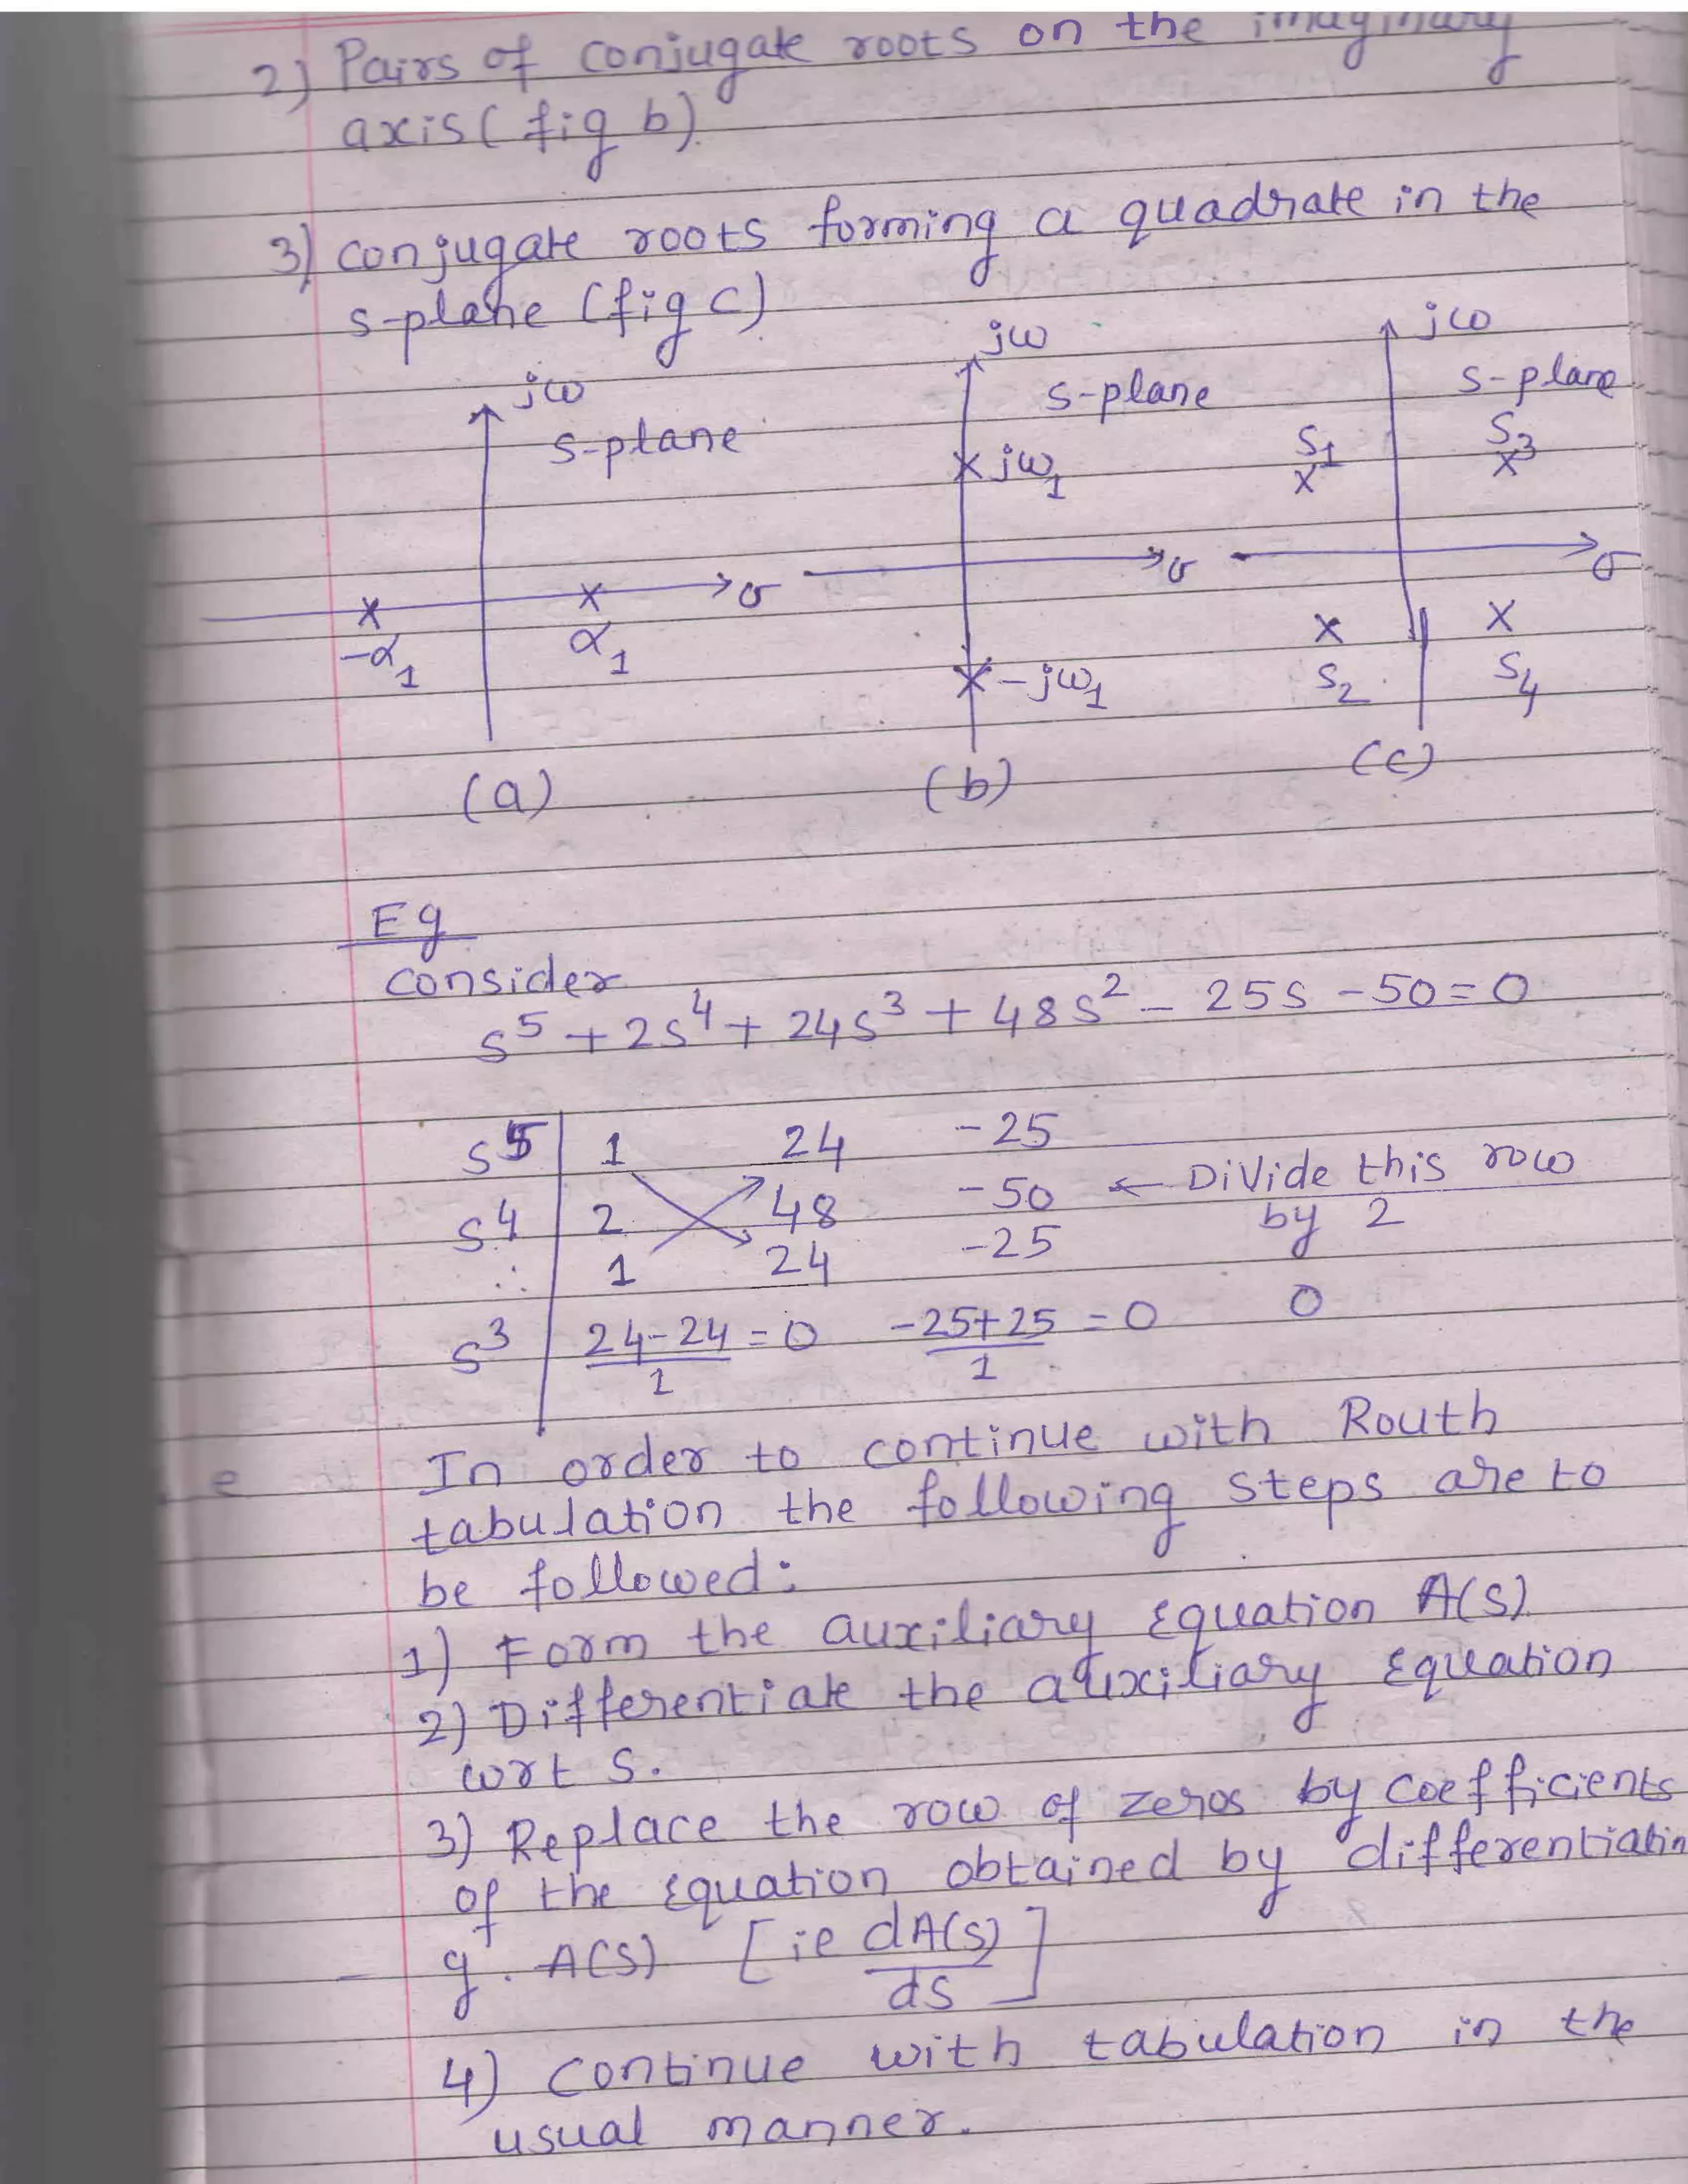 2) Pairs of conjugate roots on the imaginary
axis (fig b).
3) conjugate roots forming a quadrate in the
s-plane (fig c)
jω jω jω
s-plane s-plane s-plane
jω₁ S₁ S₃
X X X
σ σ σ
X X X X
-α₁ α₁ -jω₁ S₂ S₄
X
(a) (b) (c)
Eg
consider
s⁵ + 2s⁴ + 24s³ + 48s² - 25s - 50 = 0
s⁵ 1 24 -25
s⁴ 2 48 -50 ← Divide this row
by 2
∴ 1 24 -25
s³ 24-24/1 = 0 -25+25/1 = 0 0
In order to continue with Routh
e
tabulation the following steps are to
be followed:
1) Form the auxiliary Equation A(s)
2) Differentiate the auxiliary Equation
wrt s.
3) Replace the row of zeros by coefficients
of the Equation obtained by differentiatin
g. A(s) [ie dA(s)/ds]
4) continue with tabulation in the
usual manner.